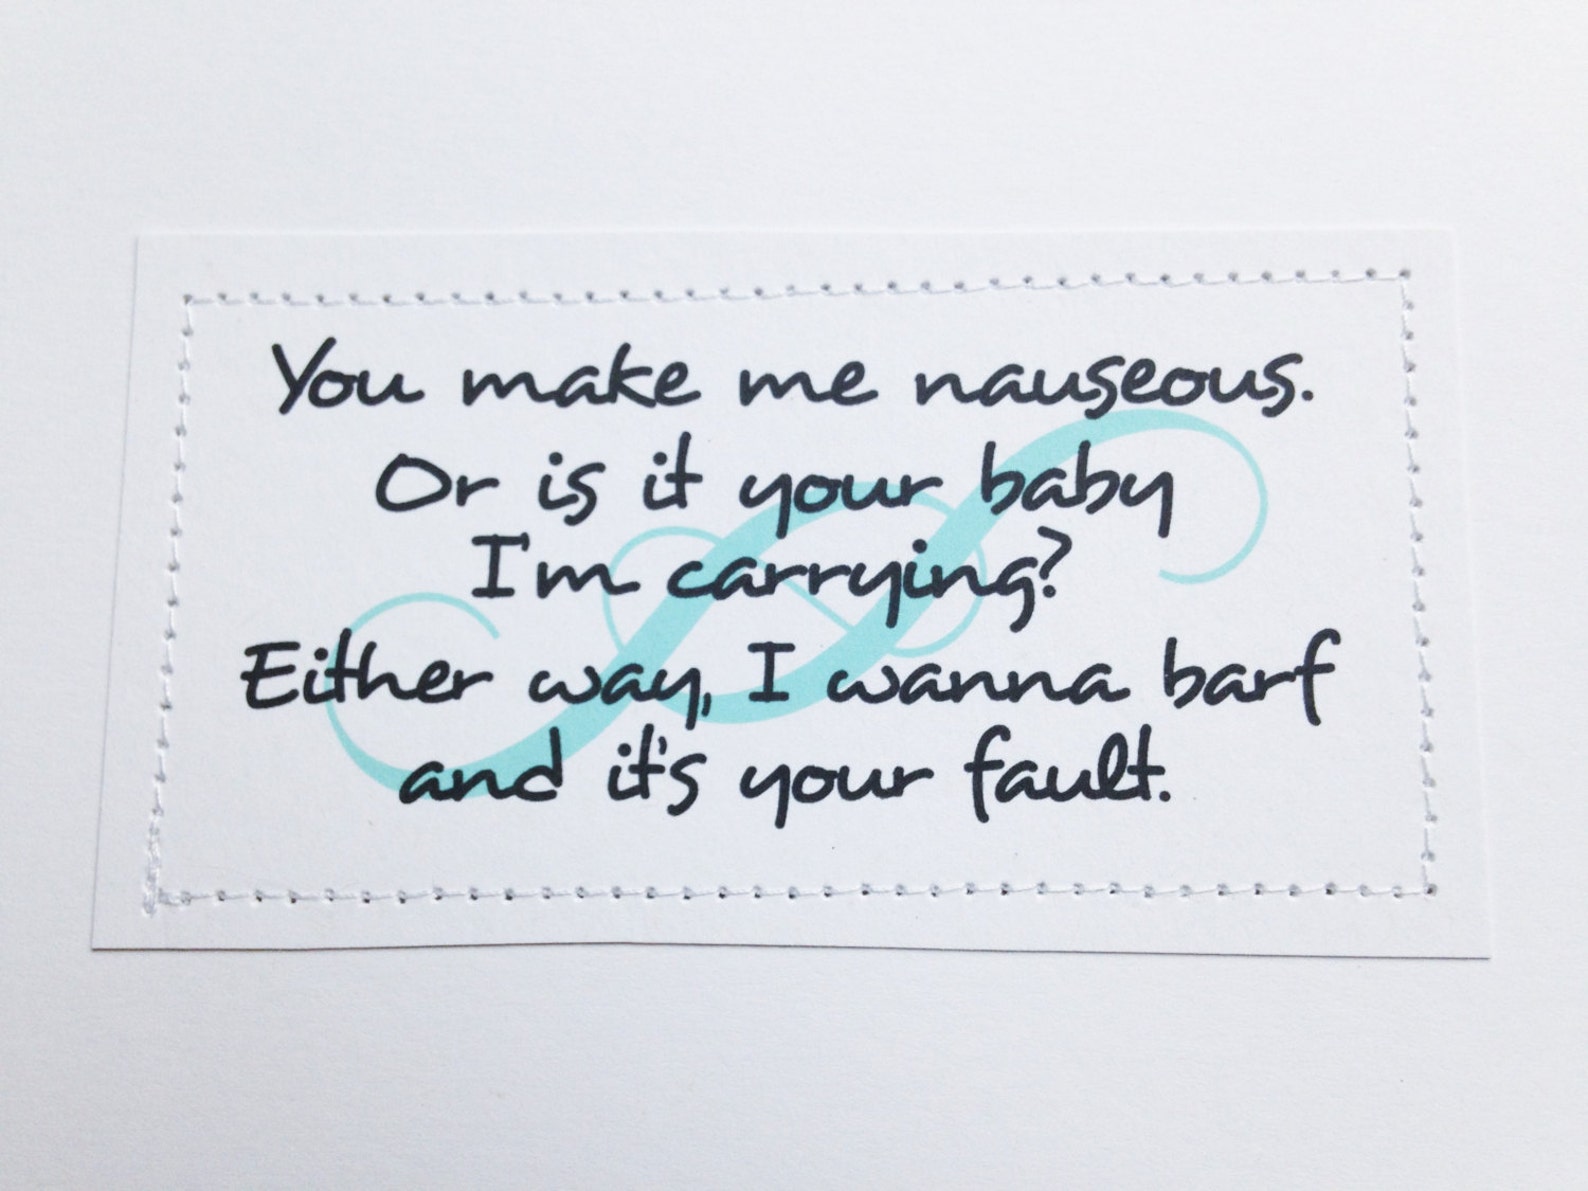 You make me nauseous.
Or is it your baby
I'm carrying?
Either way, I wanna barf
and it's your fault.